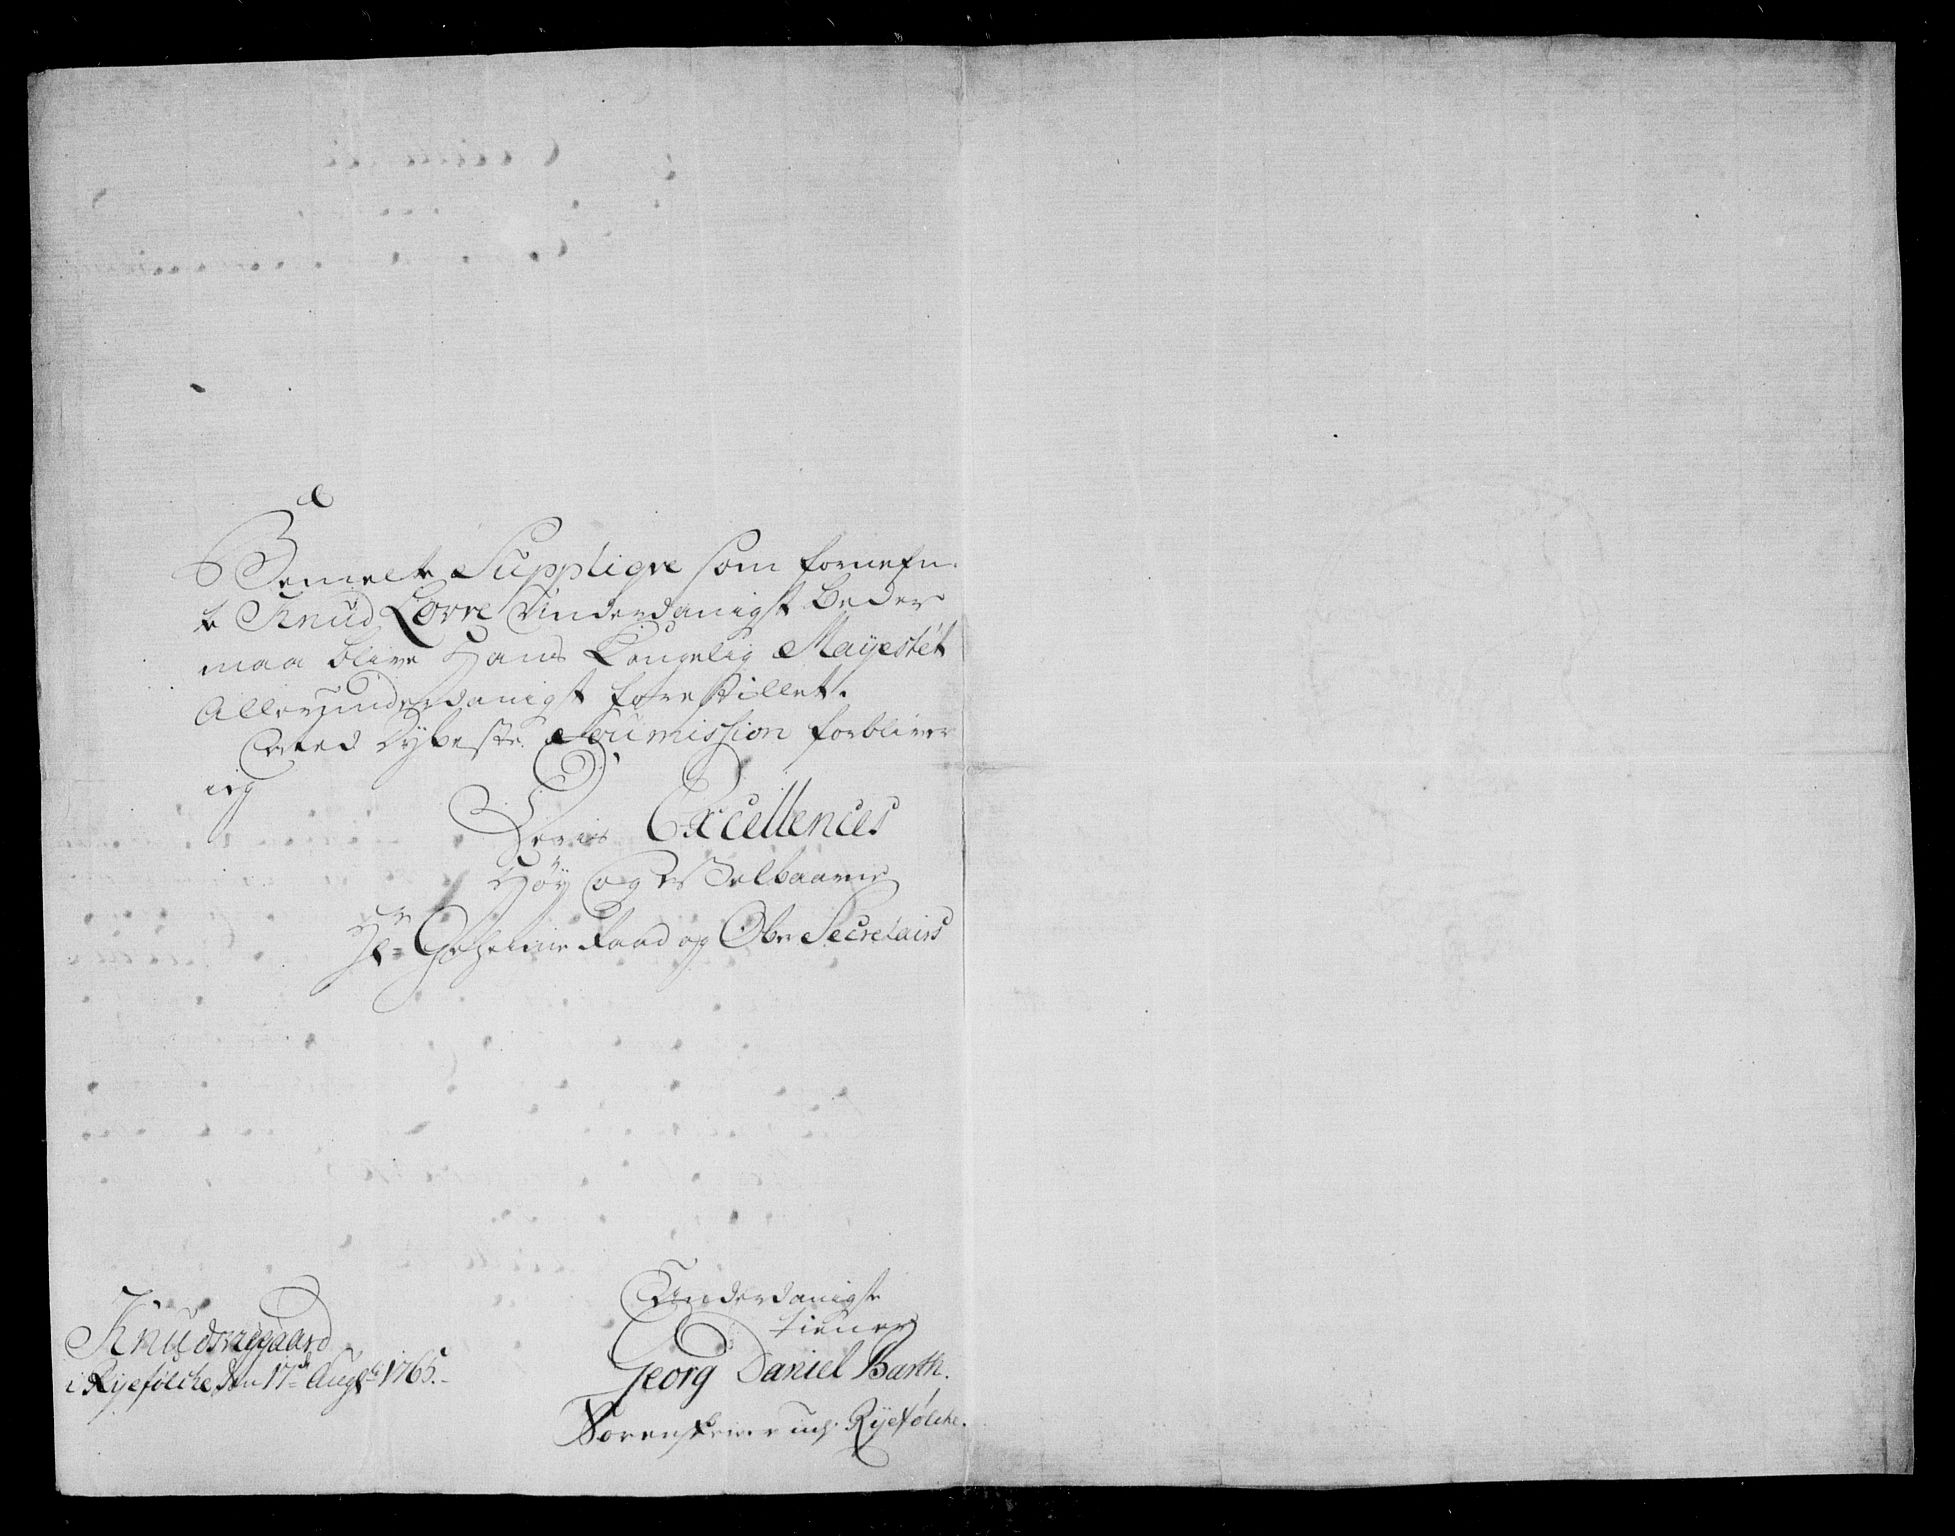 Bemelte Supplique som fornefn-
te Knud Lovre Underdanigst beder
maa blive Hans Kongelig Mayestét
Allerunderdanigst forestillet.
Med dybeste Soumission forbliver
ieg
Deris Excellences
Høy og Velbaarne
Hr Geheime Raad og Ober Secretairs
Underdanigste
tiener
Georg Daniel Barth.
Sorenskriver udj Ryefølche.
Knudsvigaard
i Ryefølche, den 17d Augti 1765.